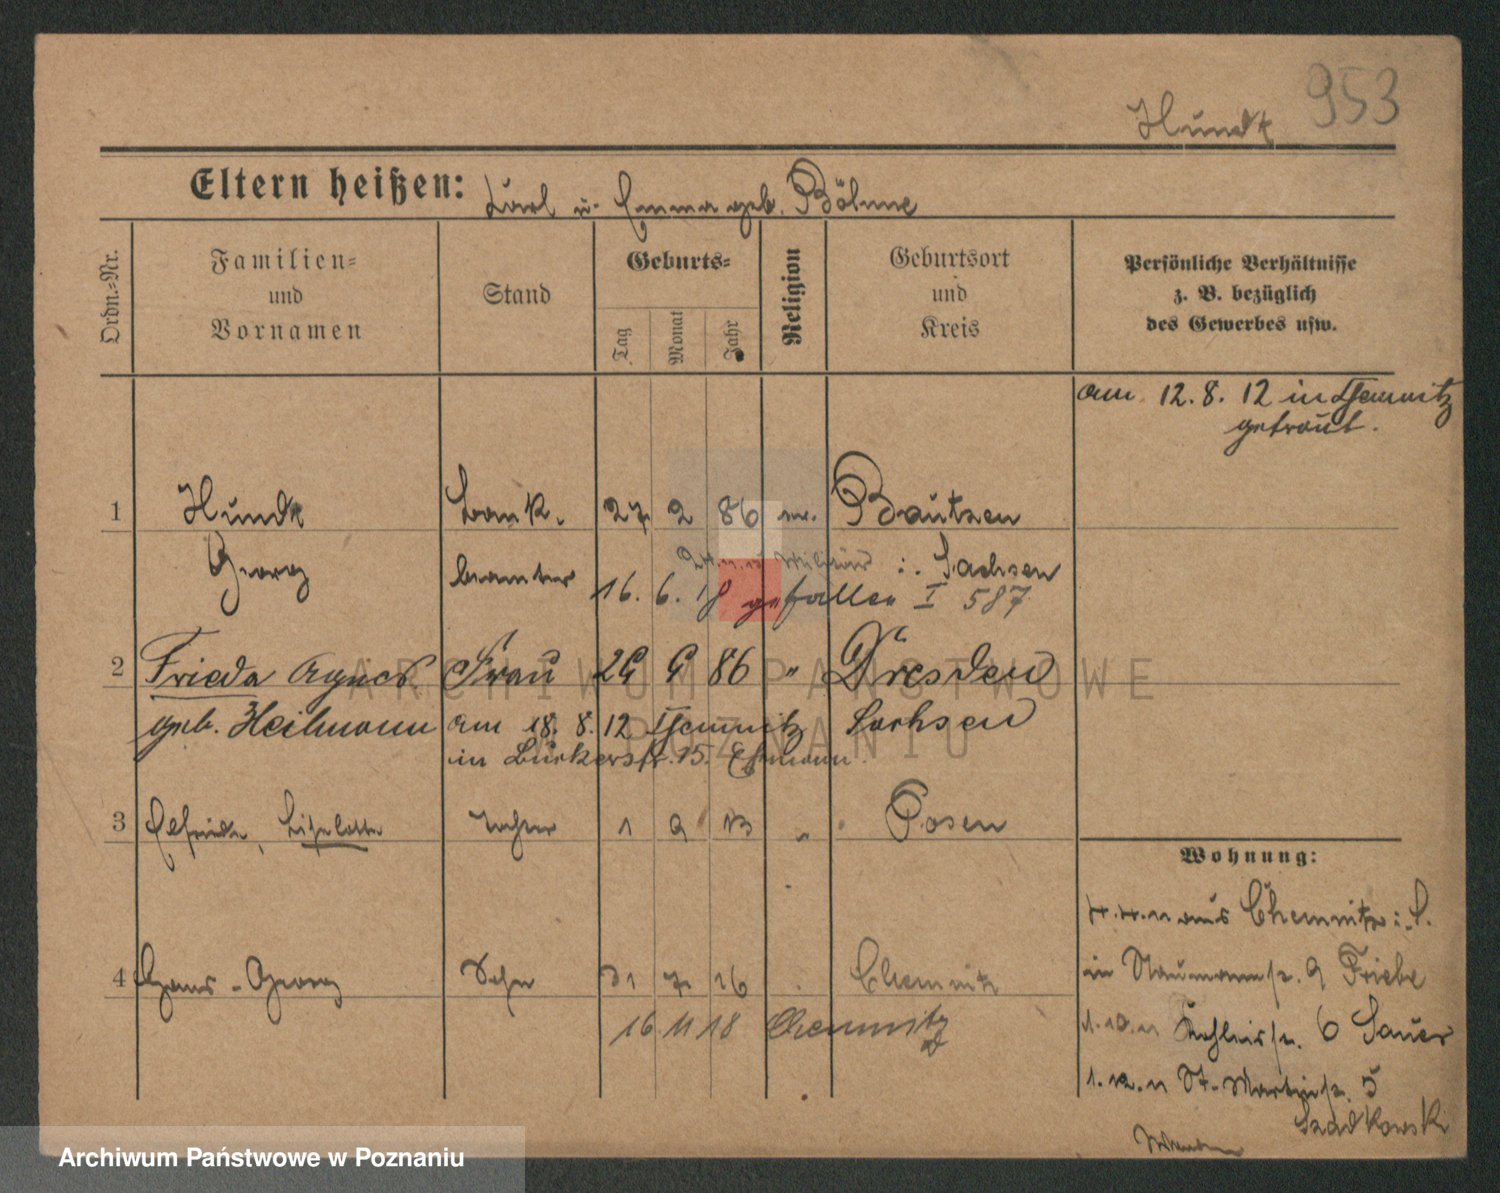 953
Hundt
Eltern heißen: Karl u. Emma geb. Böhme
Ordn.-Nr.
Familien-
und
Vornamen
Stand
Geburts-
Tag
Monat
Jahr
Religion
Geburtsort
und
Kreis
Persönliche Verhältnisse
z. B. bezüglich
des Gewerbes usw.
am 12. 8. 12 in Chemnitz
getraut.
1 Hundt Bank- 27 2 86 ev. Bautzen
Georg beamter i. Sachsen
Militär
16. 6. 18 gefallen I 587
2 Frieda Agnes Frau 86 " Dresden
geb. Heilmann am 18. 8. 12 Chemnitz Sachsen
in 15. Ehmann.
3 Elfriede, Liselotte Tochter 1 9 13 " Posen
Wohnung:
aus Chemnitz i. S.
in Naumannstr. 9 Friebe
4 Hans-Georg Sohn 31 7 16 Chemnitz
16 11 18 Chemnitz
6 Sauer
St. Martinstr. 5
Szadkowski
ARCHIWUM PAŃSTWOWE
W POZNANIU
Archiwum Państwowe w Poznaniu